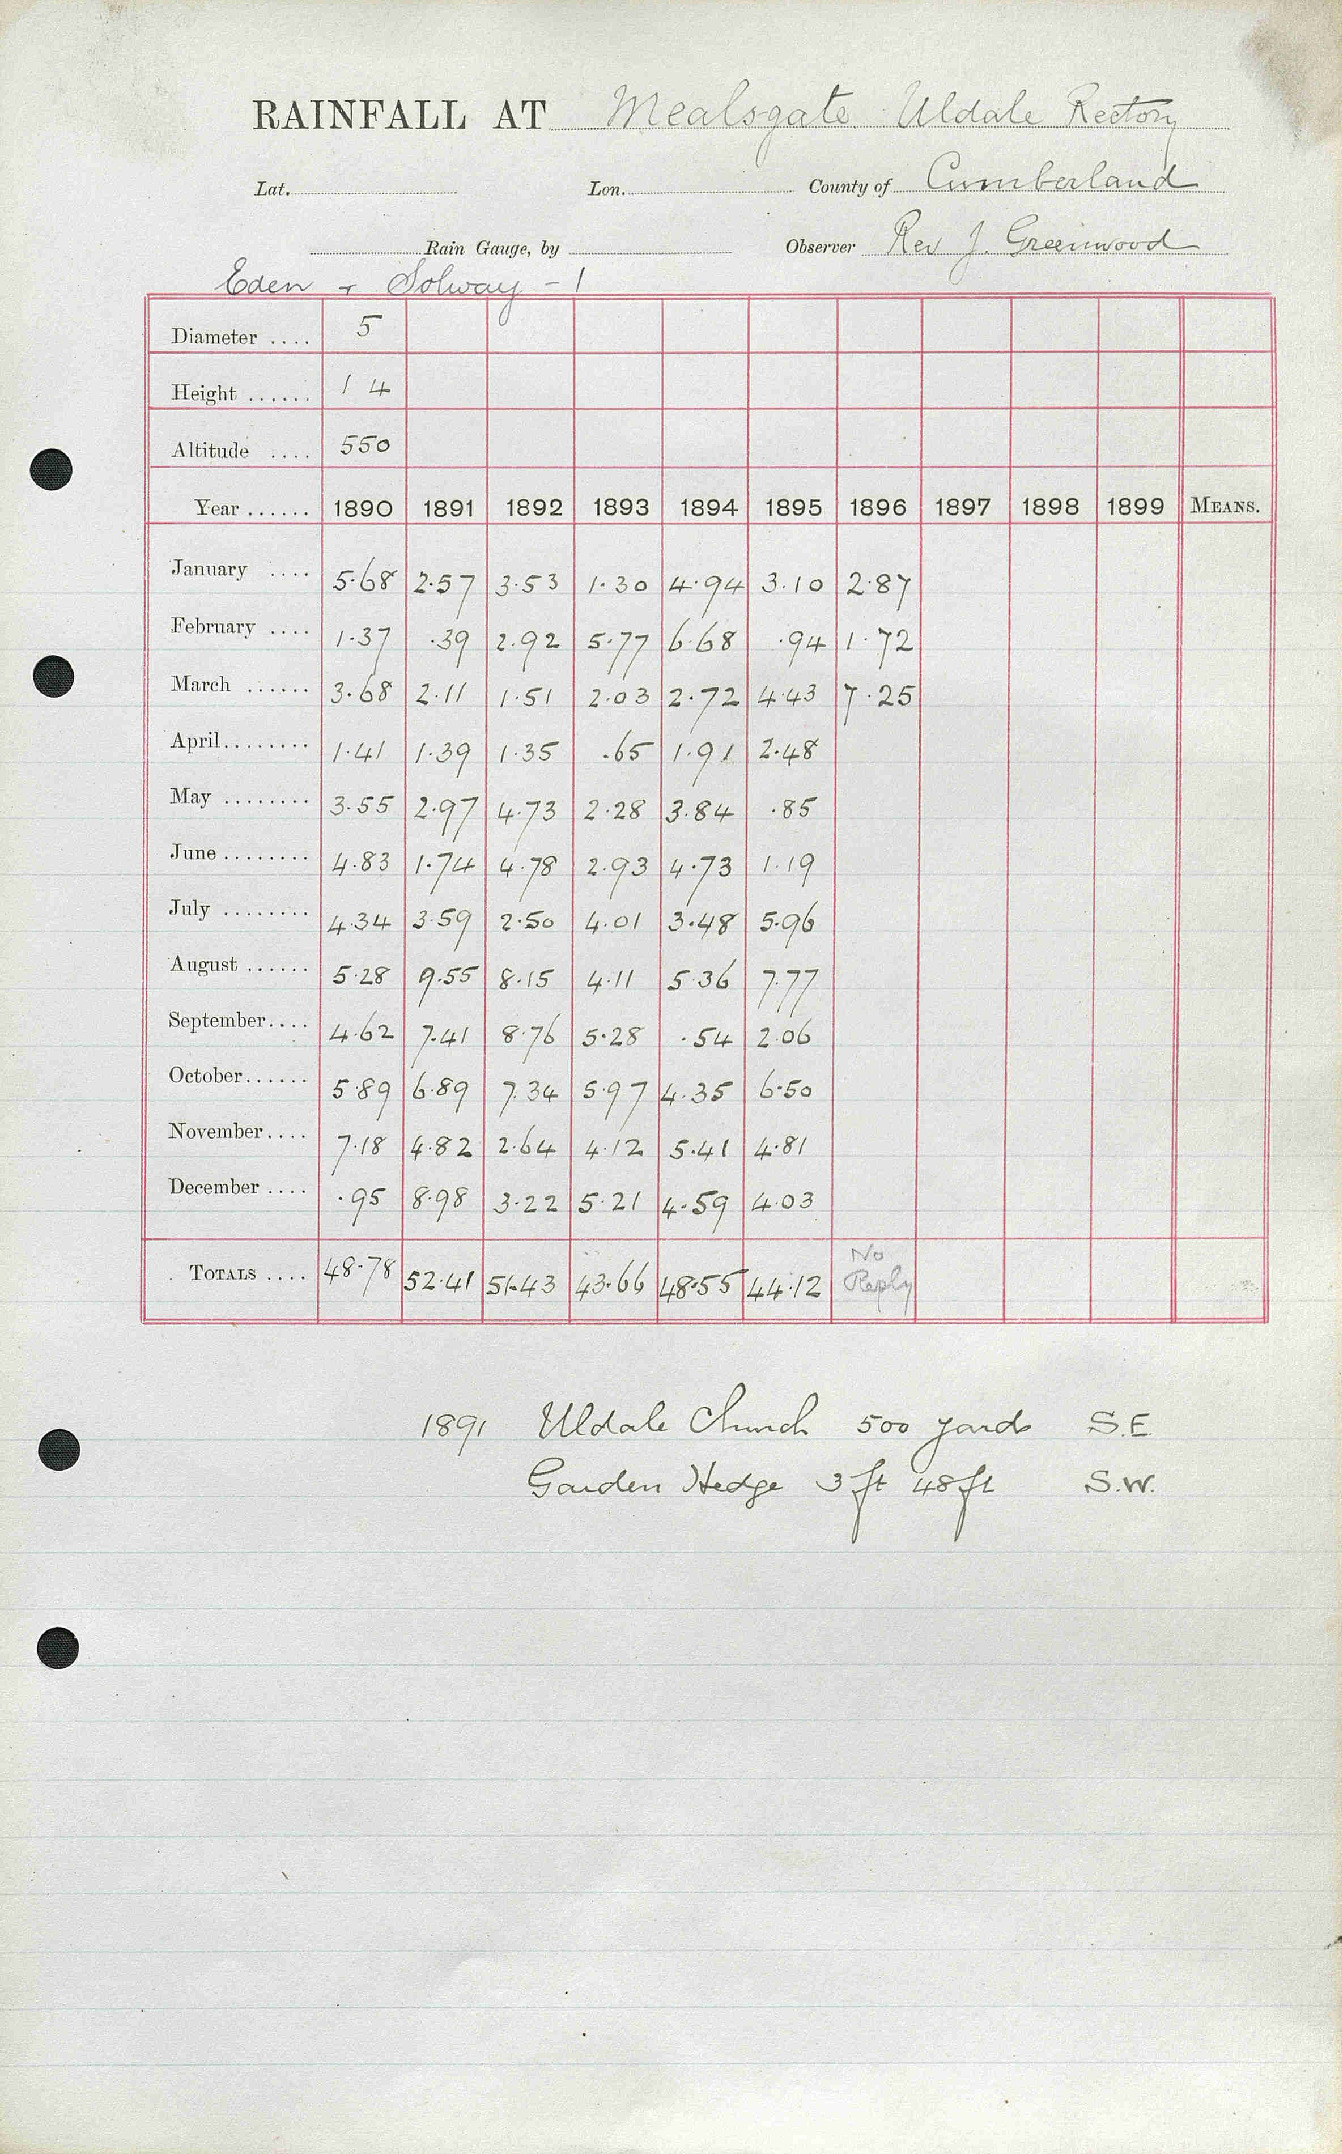 RAINFALL AT Mealsgate Uldale Rectory
Lat. Lon. County of Cumberland
Rain Gauge, by Observer Rev J. Greenwood
Eden + Solway - 1
Diameter .... 5
Height ...... 1 4
Altitude .... 550
Year ...... 1890 1891 1892 1893 1894 1895 1896 1897 1898 1899 MEANS.
January .... 5.68 2.57 3.53 1.30 4.94 3.10 2.87
February .... 1.37 .39 2.92 5.77 6.68 .94 1.72
March ...... 3.68 2.11 1.51 2.03 2.72 4.43 7.25
April........ 1.41 1.39 1.35 .65 1.91 2.48
May ........ 3.55 2.97 4.73 2.28 3.84 .85
June ........ 4.83 1.74 4.78 2.93 4.73 1.19
July ........ 4.34 3.59 2.50 4.01 3.48 5.96
August ...... 5.28 9.55 8.15 4.11 5.36 7.77
September.... 4.62 7.41 8.76 5.28 .54 2.06
October...... 5.89 6.89 7.34 5.97 4.35 6.50
November.... 7.18 4.82 2.64 4.12 5.41 4.81
December .... .95 8.98 3.22 5.21 4.59 4.03
TOTALS .... 48.78 52.41 51.43 43.66 48.55 44.12 No Reply
1891 Uldale Church 500 yards S.E
Garden Hedge 3 ft 48 ft S.W.